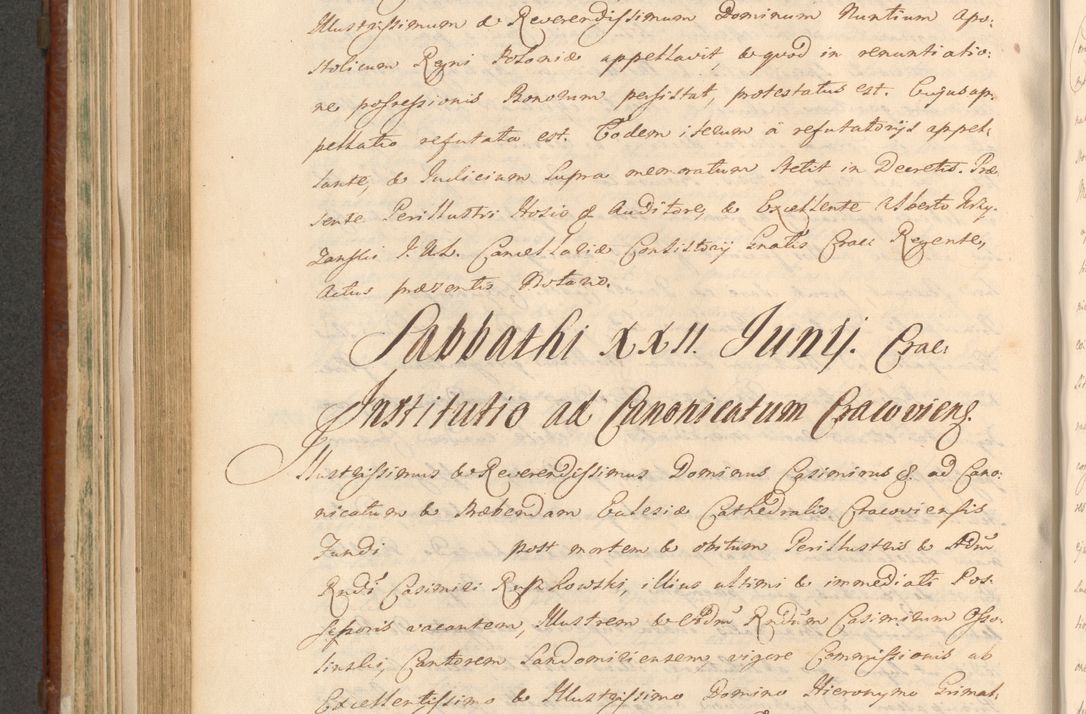 Illustrissimum & Reverendissimum Dominum Nuntium Apo:
stolicum Regni Poloniæ appellavit, & quod in renuntiatio:
ne possessionis Bonorum persistat, protestatus est. Cujus ap:
pellatio refutata est. Eodem iterum à refutatorijs appel:
lante, & Judicium supra memoratum stetit in Decretis. Præ
sente Perillustri Hosio & Auditore, & Excellente Alberto
J. U. D. Cancellariæ Consistorij Gnalis Crac: Regente,
Actus præsentis Notario.
Sabbathi XXII. Junij. Crac:
Institutio ad Canonicatum Cracoviens.
Illustrissimus & Reverendissimus Dominus Casimirus &. ad Cano:
nicatum & Præbendam Ecclesiæ Cathedralis Cracoviensis
Fundi post mortem & obitum Perillustris & Adm̃
Rndi Casimiri Ruszkowski, illius ultimi & immediati Pos:
sessoris vacantem, Illustrem & Adm̃ Rndum Casimirum Osso:
linski, Cantorem Sandomiriensem vigore Commissionis ab
Excellentissimo & Illustrissimo Domino Hieronymo Grimal: